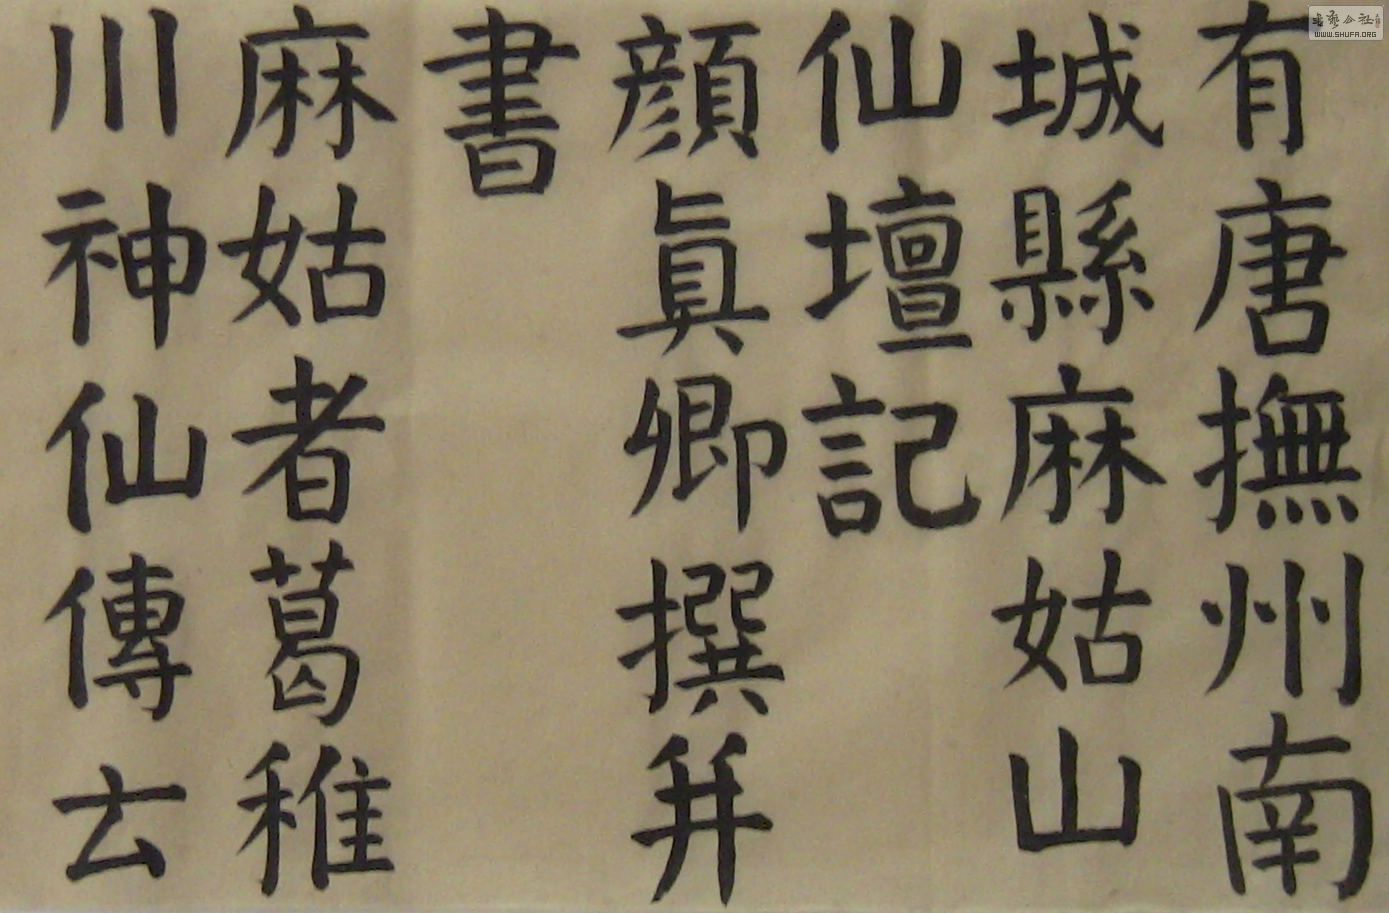 有唐撫州南
城縣麻姑山
仙壇記
顏眞卿撰并
書
麻姑者葛稚
川神仙傳云
WWW.SHUFA.ORG